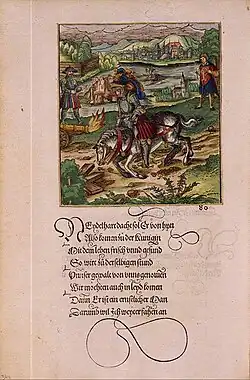 80
Neydelhart dacht sol Er von hyer
Also komen zu der Kunigin
Mit dem leben frisch vnnd gesund
So wirt zů derselbigen stund
Vnnser gewalt von vnns genomen
Wir mochten auch in leyd komen
Dann Er ist ein ernstlicher Man
Darumb wil Ich weyter fahen an